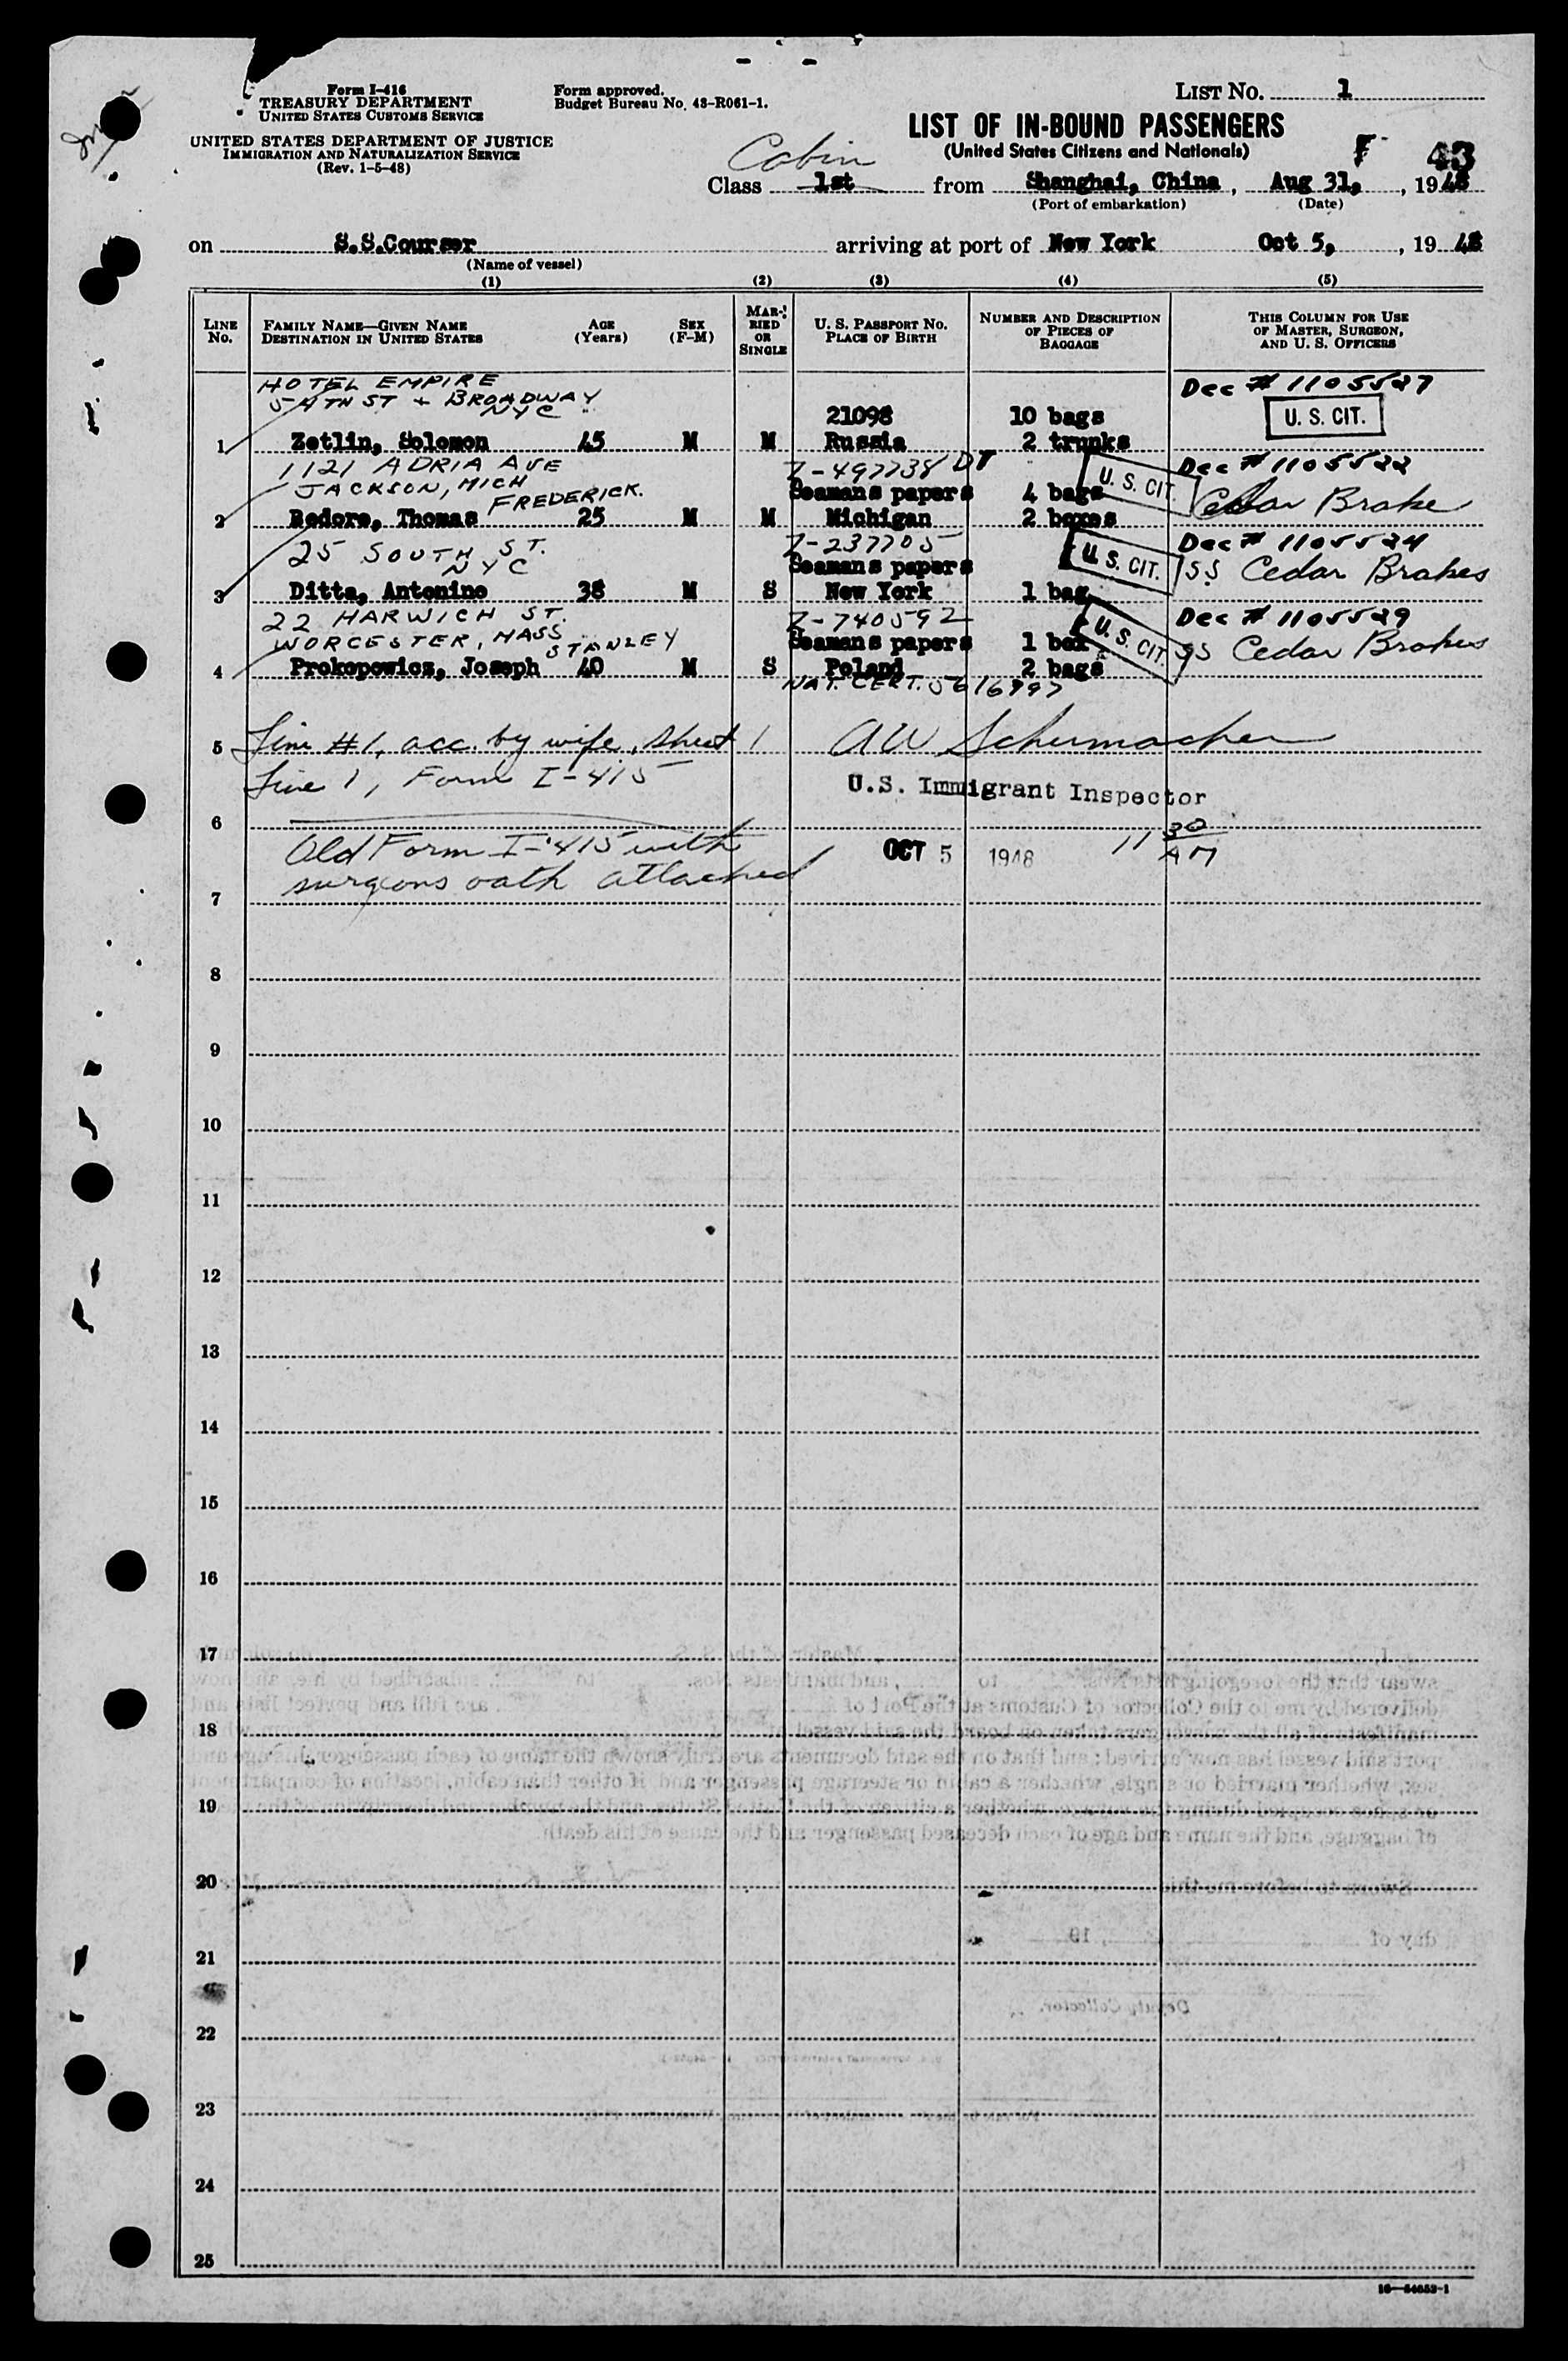 Form I-416
TREASURY DEPARTMENT
UNITED STATES CUSTOMS SERVICE
UNITED STATES DEPARTMENT OF JUSTICE
IMMIGRATION AND NATURALIZATION SERVICE
(Rev. 1-5-48)
Form approved.
Budget Bureau No. 43-R061-1.
LIST NO. 1
LIST OF IN-BOUND PASSENGERS
(United States Citizens and Nationals)
43
Cabin
Class 1st from Shanghai, China, Aug 31, 1948
(Port of embarkation) (Date)
on S.S.Courser arriving at port of New York Oct 5, 1948
(Name of vessel)
(1) (2) (3) (4) (5)
LINE NO.
FAMILY NAME—GIVEN NAME
DESTINATION IN UNITED STATES
AGE (Years)
SEX (F-M)
MARRIED OR SINGLE
U. S. PASSPORT NO.
PLACE OF BIRTH
NUMBER AND DESCRIPTION OF PIECES OF BAGGAGE
THIS COLUMN FOR USE OF MASTER, SURGEON, AND U. S. OFFICERS
HOTEL EMPIRE Dec # 1105527
54TH ST + BROADWAY
NYC 21098 10 bags U. S. CIT.
1 Zetlin, Solomon 45 M M Russia 2 trunks
1121 ADRIA AVE Z-497738 DT Dec # 1105522
JACKSON, MICH FREDERICK. Seamans papers 4 bags U. S. CIT. Cedar Brake
2 Redore, Thomas 25 M M Michigan 2 boxes
25 SOUTH ST. Z-237705 Dec # 1105524
NYC Seamans papers U. S. CIT. SS Cedar Brakes
3 Ditta, Antonino 38 M S New York 1 bag
22 HARWICH ST. Z-740592 Dec # 1105529
WORCESTER, MASS. STANLEY Seamans papers 1 box U. S. CIT. SS Cedar Brakes
4 Prokopowicz, Joseph 40 M S Poland 2 bags
NAT. CERT. 5616997
5 Line #1, acc. by wife, sheet 1 AW Schumacher
Line 1, Form I-415
U.S. Immigrant Inspector
6
Old Form I-415 with OCT 5 1948 11 30 AM
surgeons oath attached
7
8
9
10
11
12
13
14
15
16
17
18
19
20
21
22
23
24
25
16—54653-1